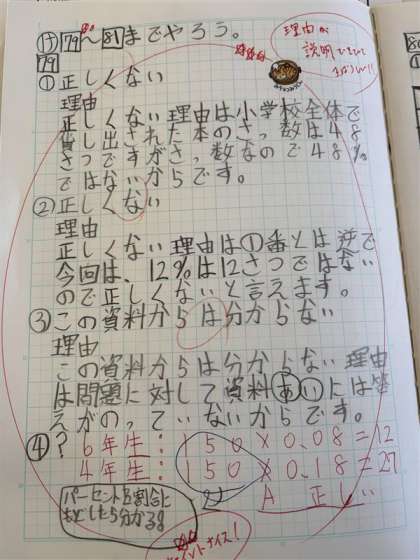 ㋘79〜81までやろう。
理由の
説明できてて
すばらしい!!
79
①正しくない
理由
正しくない理由は小学校全体で
貸し出された本のさっ数は48
さつですがさっ数なので48%
ではないからです。
②正しくない
理由
正しくない理由は①番とは逆で
今回は、12%は12さつではない
ので正しくないと言えます。
③この資料からは分からない
理由
この資料からは分からない理由
は問題に対して資料あいには答
えがのっていないからです。
④?
6年生:150×0.08=12
4年生:150×0.18=27
A 正しい
パーセントを割合に
もどしたら分かる
ナイス!